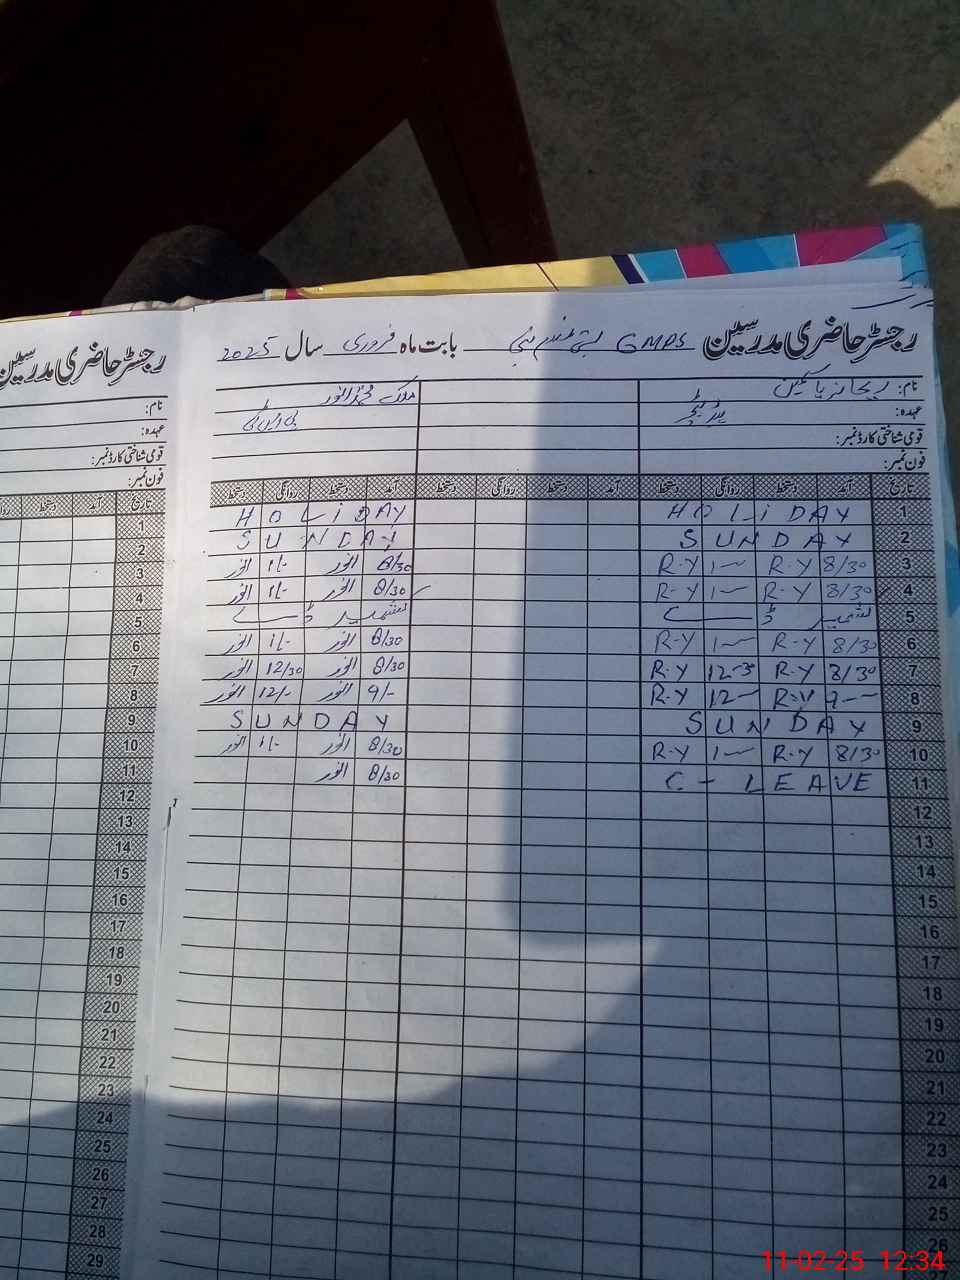 رجسٹر حاضری مدرسین GMPS بستی بابت ماہ فروری سال 2025
نام: ریحانہ یاسمین ملک محمد انور
عہدہ: ہیڈ ٹیچر پی ایس ٹی
قومی شناختی کارڈ نمبر:
فون نمبر:
تاریخ آمد دستخط روانگی دستخط آمد دستخط روانگی دستخط آمد دستخط روانگی دستخط
1 HOLiDAY HOLiDAY
2 SUNDAY SUNDAY
3 8/30 R-Y 1— R-Y 8/30 انور 1/- انور
4 8/30 R-Y 1— R-Y 8/30 انور 1/- انور
5 کشمیر ڈے کشمیر ڈے
6 8/30 R-Y 1— R-Y 8/30 انور 1/- انور
7 8/30 R-Y 12-3 R-Y 8/30 انور 12/30 انور
8 9-- R-Y 12— R-Y 9/- انور 12/- انور
9 SUNDAY SUNDAY
10 8/30 R-Y 1— R-Y 8/30 انور 1/- انور
11 C - LEAVE 8/30 انور
12
13
14
15
16
17
18
19
20
21
22
23
24
25
26
27
رجسٹر حاضری مدرسین
نام:
عہدہ:
قومی شناختی کارڈ نمبر:
فون نمبر:
تاریخ آمد دستخط روانگی
1
2
3
4
5
6
7
8
9
10
11
12
13
14
15
16
17
18
19
20
21
22
23
24
25
26
27
28
29
11-02-25 12:34